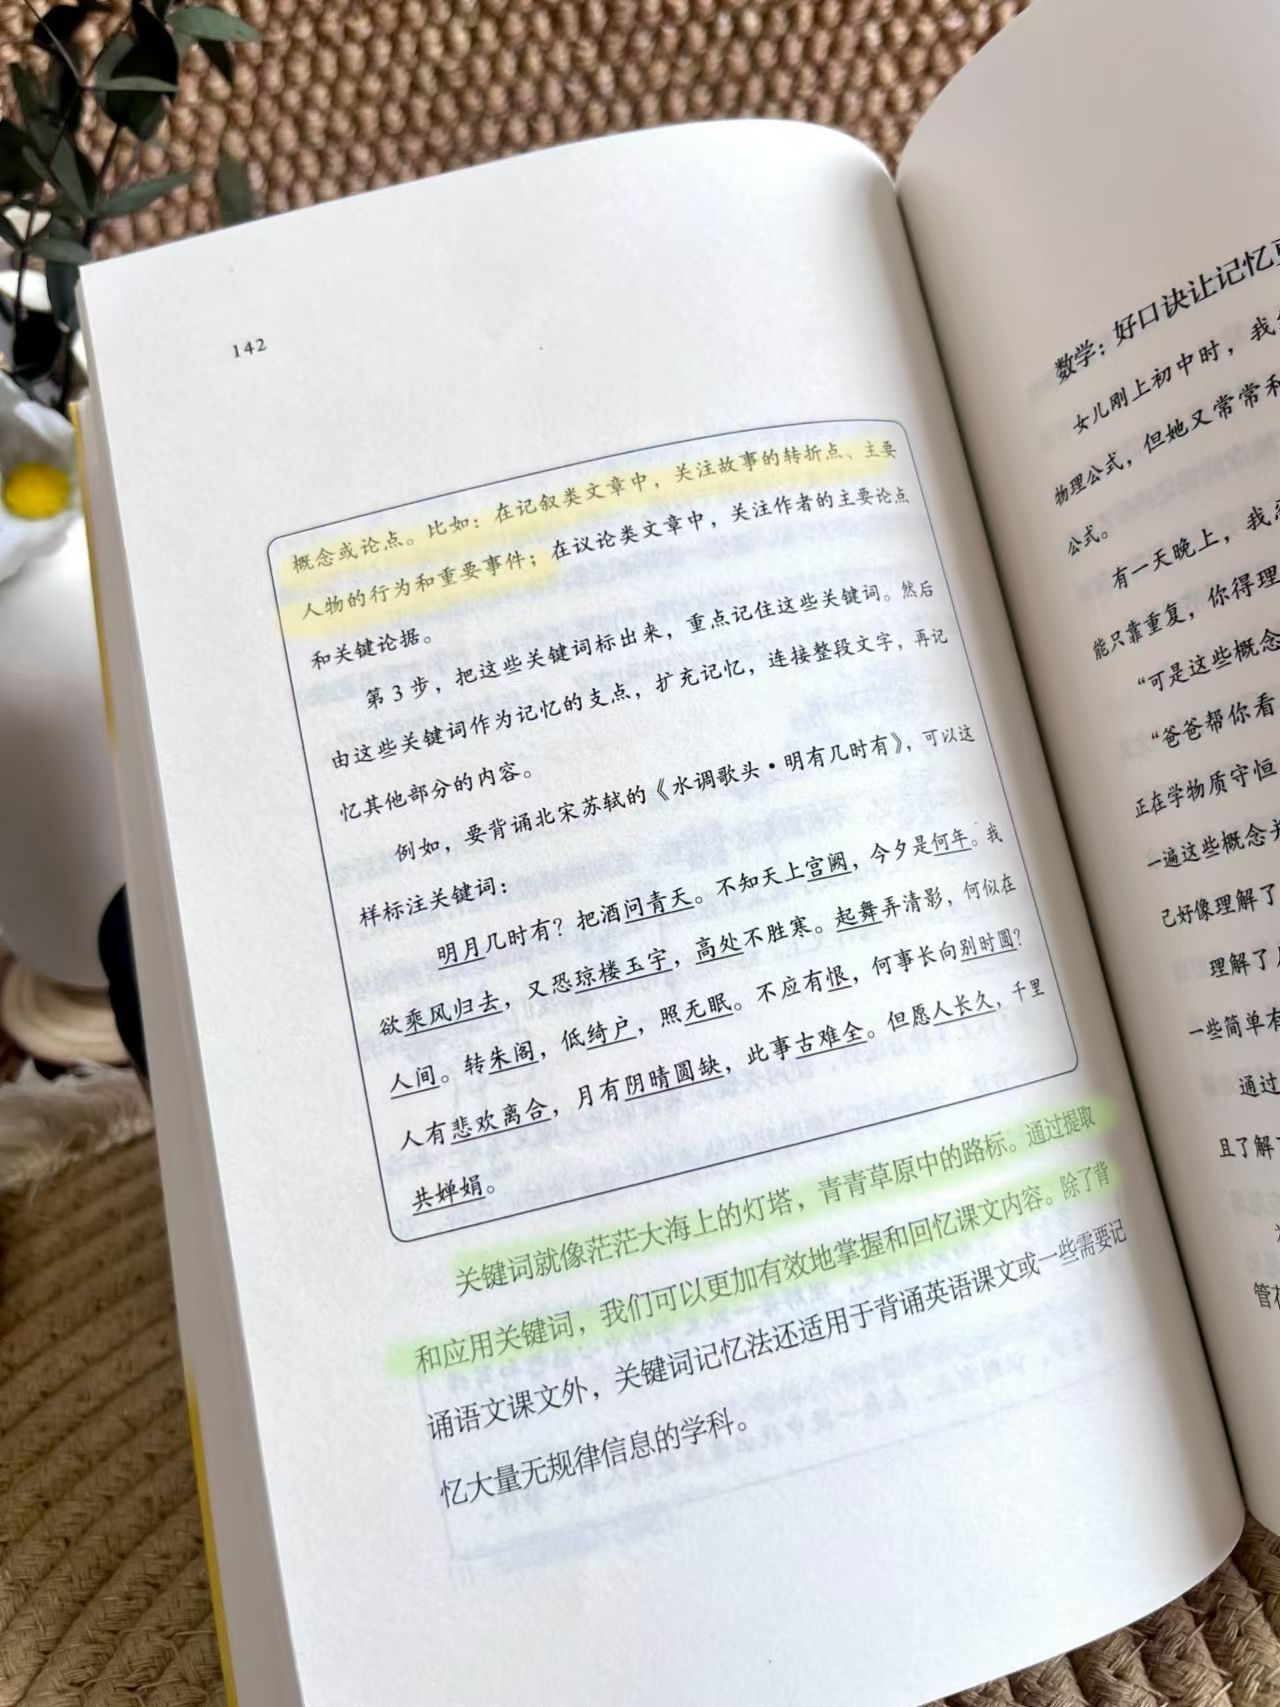 142
概念或论点。比如：在记叙类文章中，关注故事的转折点、主要
人物的行为和重要事件；在议论类文章中，关注作者的主要论点
和关键论据。
第 3 步，把这些关键词标出来，重点记住这些关键词。然后
由这些关键词作为记忆的支点，扩充记忆，连接整段文字，再记
忆其他部分的内容。
例如，要背诵北宋苏轼的《水调歌头·明有几时有》，可以这
样标注关键词：
明月几时有？把酒问青天。不知天上宫阙，今夕是何年。我
欲乘风归去，又恐琼楼玉宇，高处不胜寒。起舞弄清影，何似在
人间。转朱阁，低绮户，照无眠。不应有恨，何事长向别时圆？
人有悲欢离合，月有阴晴圆缺，此事古难全。但愿人长久，千里
共婵娟。
关键词就像茫茫大海上的灯塔，青青草原中的路标。通过提取
和应用关键词，我们可以更加有效地掌握和回忆课文内容。除了背
诵语文课文外，关键词记忆法还适用于背诵英语课文或一些需要记
忆大量无规律信息的学科。
数学：好口诀让记忆
女儿刚上初中时，我
物理公式，但她又常常和
公式。
有一天晚上，我
能只靠重复，你得理
“可是这些概念
“爸爸帮你看
正在学物质守恒
一遍这些概念并
己好像理解了
理解了
一些简单有
通过
且了解
管